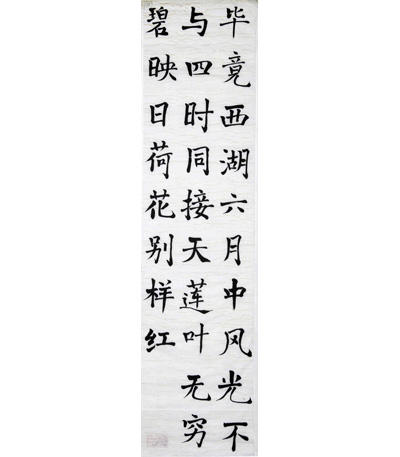 毕竟西湖六月中风光不
与四时同接天莲叶无穷
碧映日荷花别样红